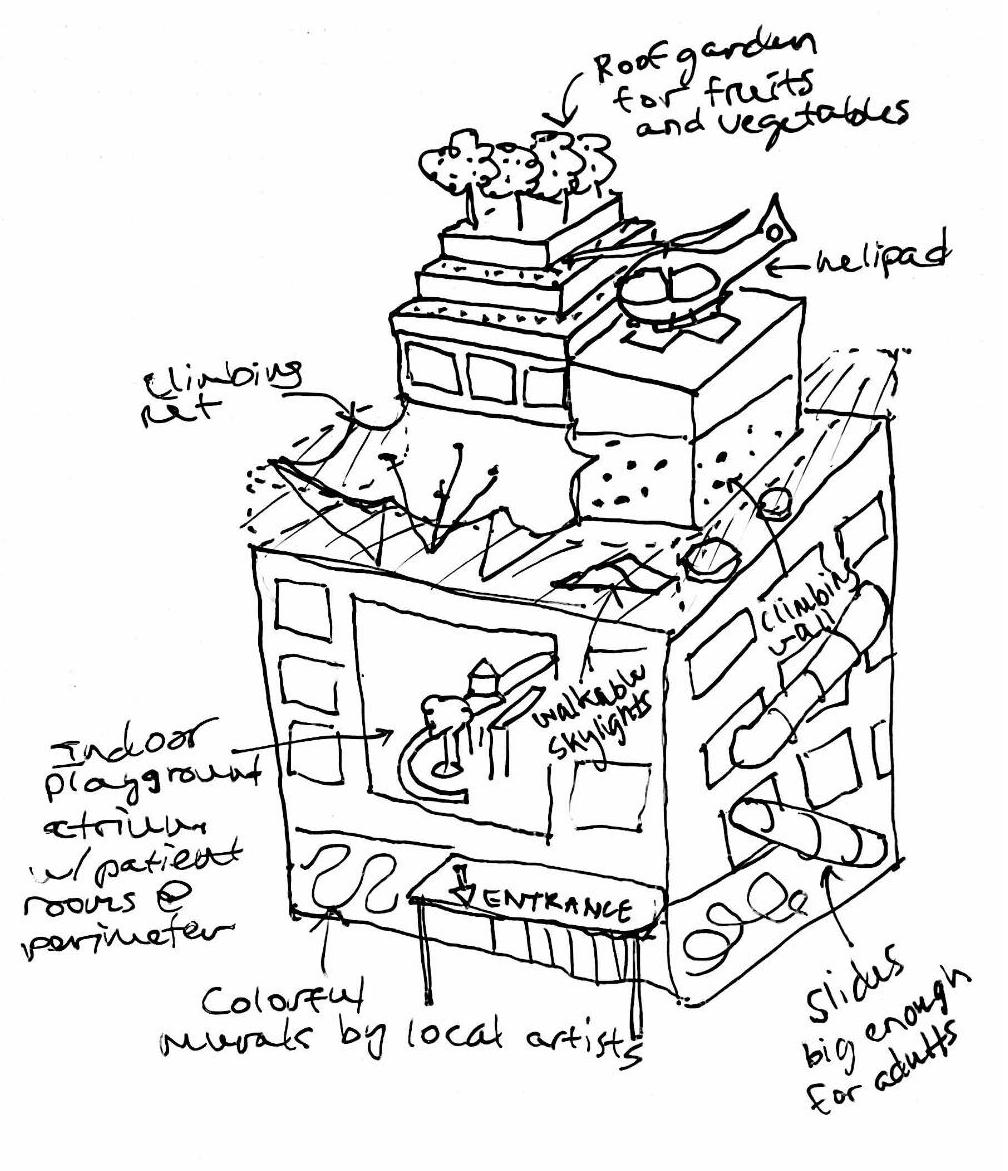 Roof garden
for fruits
and vegetables
helipad
climbing
net
climbing
wall
walkable
skylights
Indoor
playground
atrium
w/patient
rooms @
perimeter
ENTRANCE
Colorful
murals by local artists
Slides
big enough
for adults